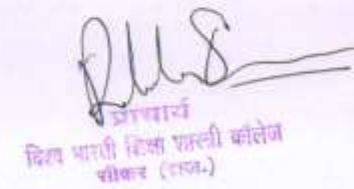 प्राचार्य
विश्व भारती शिक्षा शास्त्री कॉलेज
सीकर (राज.)